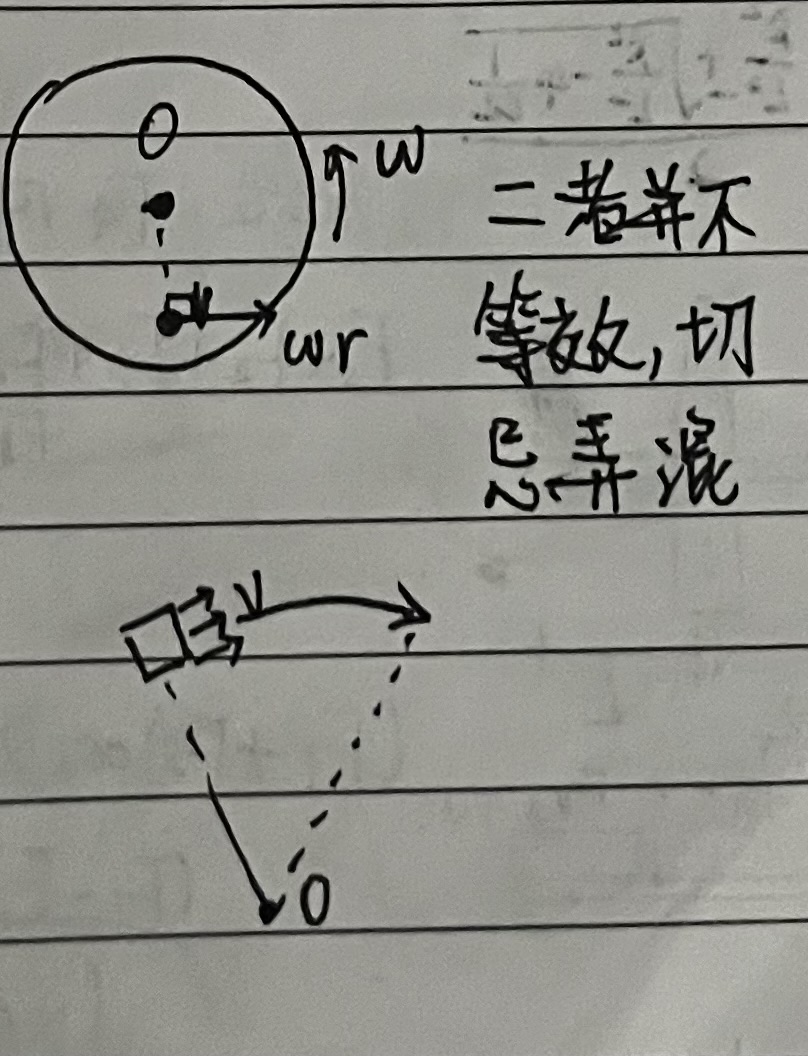 O
ω
ωr
二者并不
等效,切
忌弄混
V
O